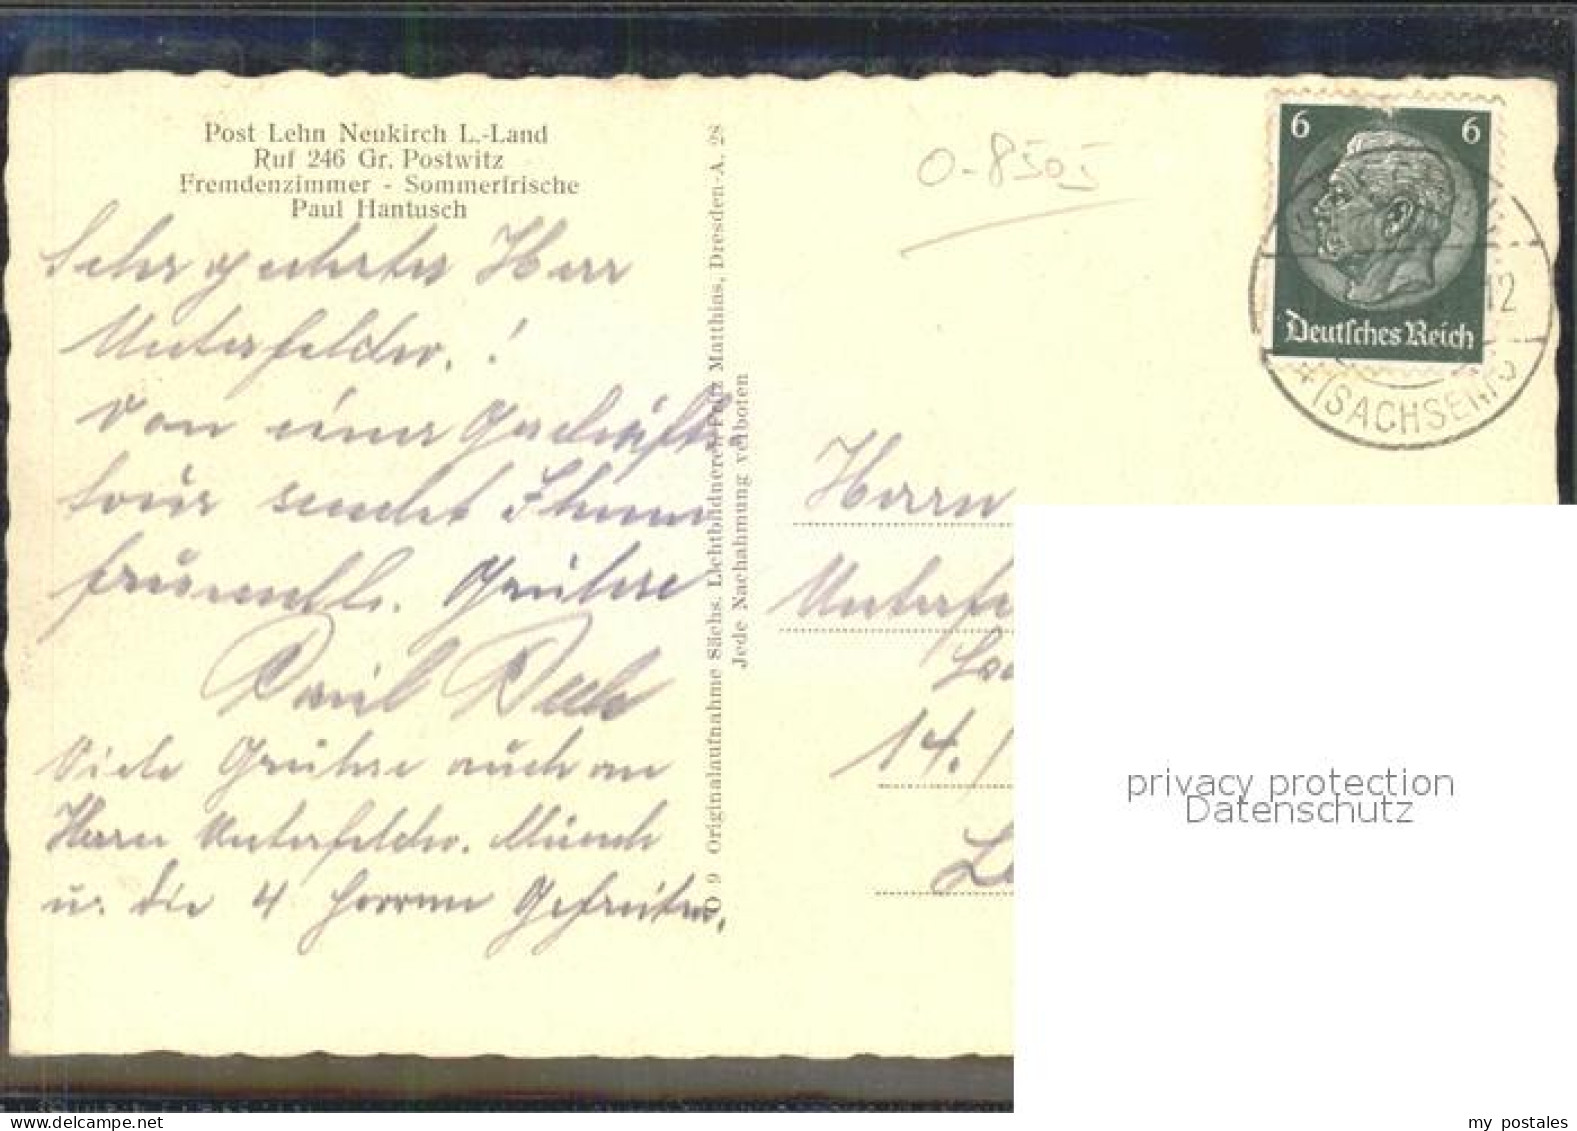 Post Lehn Neukirch L.-Land
Ruf 246 Gr. Postwitz
Fremdenzimmer - Sommerfrische
Paul Hantusch
Sehr geehrter Herr
Unterfeldw. !
Von einer Geschäfts
tour sendet Ihnen
freundl. Grühse
Paul
Viele Grühse auch an
Herrn Unterfeldw. Münch
u. die 4 Herren Gefreiten.
O 9 Originalaufnahme Sächs. Lichtbildnerei Fritz Matthias, Dresden-A. 28
Jede Nachahmung verboten
O-8505
6 6
Deutsches Reich
12
* (SACHSEN)
Herrn
Unterfe
14.
privacy protection
Datenschutz
my postales
www.delcampe.net